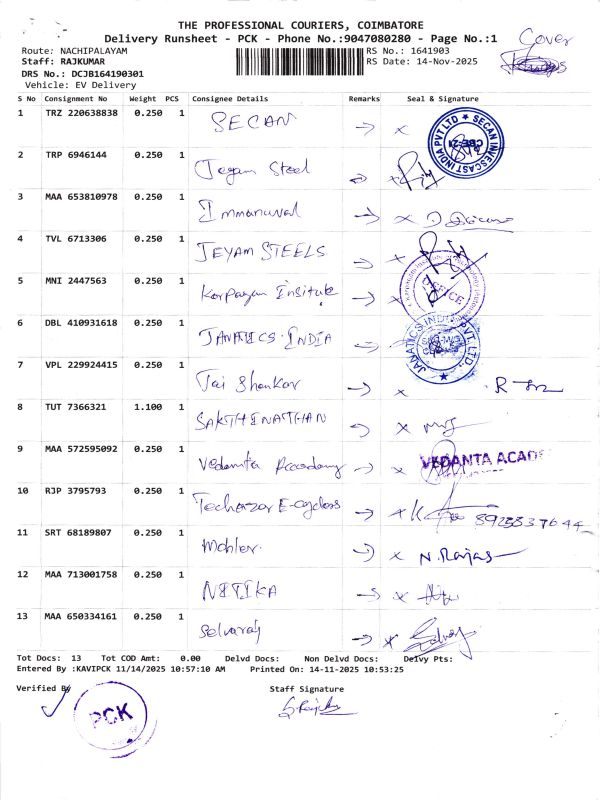 THE PROFESSIONAL COURIERS, COIMBATORE
Delivery Runsheet - PCK - Phone No.:9047080280 - Page No.:1
Cover
Route: NACHIPALAYAM RS No.: 1641903
Staff: RAJKUMAR RS Date: 14-Nov-2025
DRS No.: DCJB164190301
Vehicle: EV Delivery
S No Consignment No Weight PCS Consignee Details Remarks Seal & Signature
1 TRZ 220638838 0.250 1 SECAN → x SECAN INVESCAST INDIA PVT LTD
2 TRP 6946144 0.250 1 Jeyam Steel →
3 MAA 653810978 0.250 1 Immanuval → x
4 TVL 6713306 0.250 1 JEYAM STEELS → x
5 MNI 2447563 0.250 1 Karpagam Insitute → x OFFICE
6 DBL 410931618 0.250 1 JANATICS INDIA → JANATICS INDIA PVT. LTD.
7 VPL 229924415 0.250 1 Jai Shankar → x
8 TUT 7366321 1.100 1 SAKTHINATHAN → x
9 MAA 572595092 0.250 1 Vedanta Academy → x VEDANTA ACADE
10 RJP 3795793 0.250 1 Techazor E-cycles → x 8925537644
11 SRT 68189807 0.250 1 Mahler. → x N. Rajas
12 MAA 713001758 0.250 1 NITIKA → x
13 MAA 650334161 0.250 1 Selvaraj → x Selvaraj
Tot Docs: 13 Tot COD Amt: 0.00 Delvd Docs: Non Delvd Docs: Delvy Pts:
Entered By :KAVIPCK 11/14/2025 10:57:10 AM Printed On: 14-11-2025 10:53:25
Verified By Staff Signature
PCK